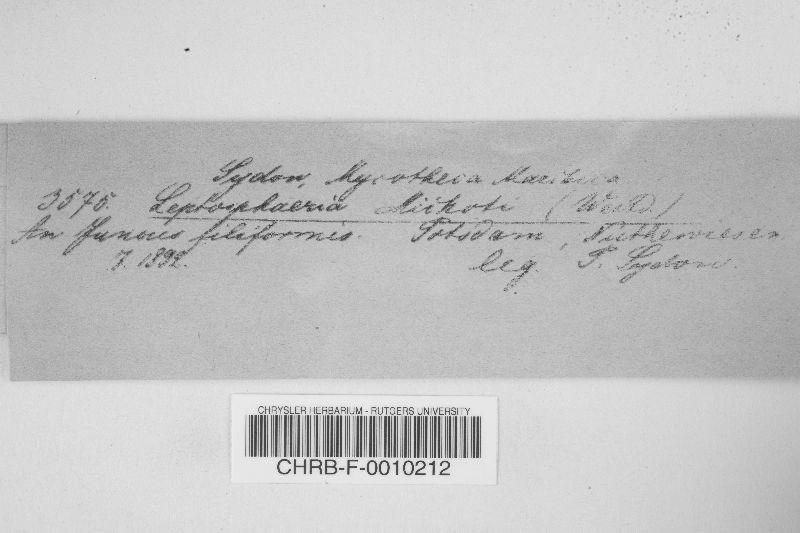 Sydow, Mycotheca Marchica
3575. Leptosphaeria Michoti (West.)
An Juncus filiformis. Potsdam, Nuthewiesen
7. 1892. leg. P. Sydow.
CHRYSLER HERBARIUM - RUTGERS UNIVERSITY
CHRB-F-0010212